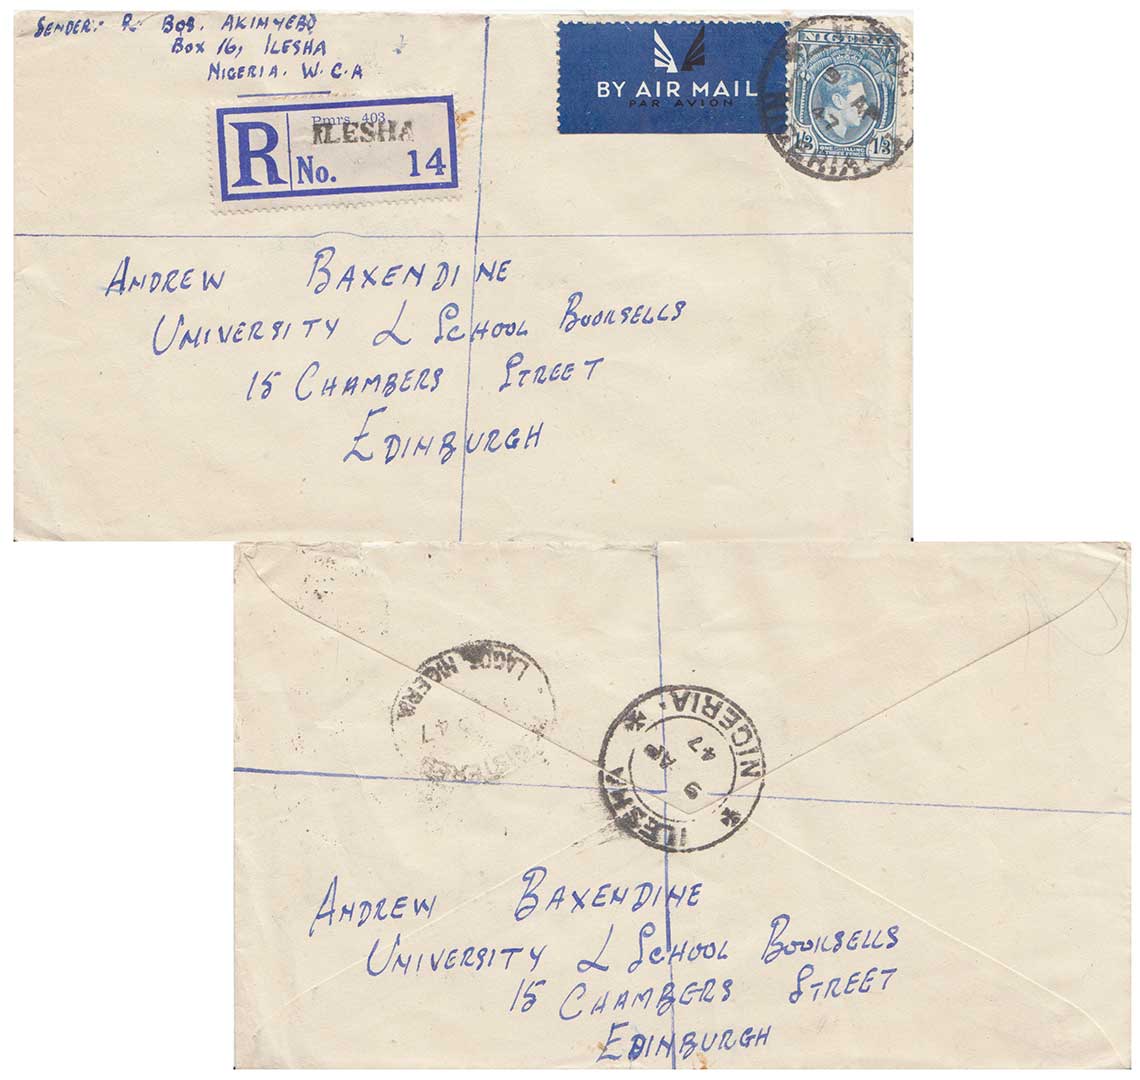 SENDER: R. BOB. AKINYEBO
BOX 16, ILESHA
NIGERIA. W.C.A
BY AIR MAIL
PAR AVION
NIGERIA
ONE SHILLING
& THREE PENCE
1/3 1/3
9 AP
47
NIGERIA
R
Pmrs 403
ILESHA
No. 14
ANDREW BAXENDINE
UNIVERSITY & SCHOOL BOOKSELLS
15 CHAMBERS STREET
EDINBURGH
LAGOS NIGERIA
47
ILESHA
NIGERIA.
9
AP
47
ANDREW BAXENDINE
UNIVERSITY & SCHOOL BOOKSELLS
15 CHAMBERS STREET
EDINBURGH